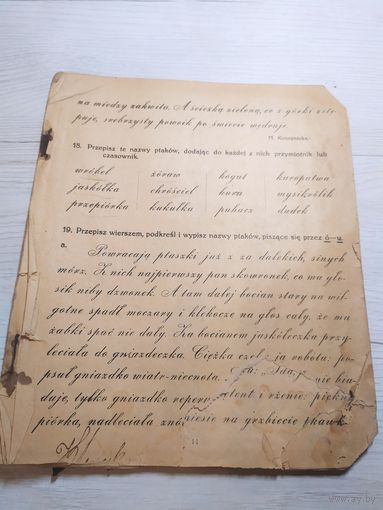 na miedzy zakwita. A ścieżką zieloną, co z górki zstę-
puje, srebrzysty powoik po świecie wędruje.
M. Konopnicka.
18. Przepisz te nazwy ptaków, dodając do każdej z nich przymiotnik lub
czasownik.
wróbel żóraw kogut kuropatwa
jaskółka chróściel kura mysikrólik
przepiórka kukułka puhacz dudek
19. Przepisz wierszem, podkreśl i wypisz nazwy ptaków, piszące się przez ó—u.
a. Powracają ptaszki już z za dalekich, sinych
mórz. Z nich najpierwszy pan skowronek, co ma gło-
sik niby dzwonek. A tam dalej bocian stary na wil-
gotne spadł moczary i klekoce na głos cały, że mu
żabki spać nie dały. Za bocianem jaskółeczka przy-
leciała do gniazdeczka. Ciężka ją robota: po-
psuł gniazdko wiatr-niecnota. nie bia-
duje, tylko gniazdko i rżenie:
piórka, nadleciała na grzbiecie
11